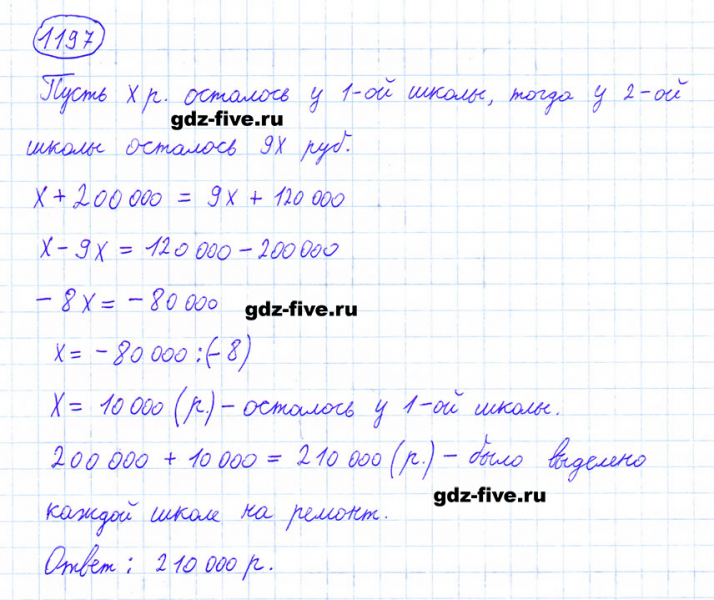 1197
Пусть x р. осталось у 1-ой школы, тогда у 2-ой
gdz-five.ru
школы осталось 9x руб.
x + 200 000 = 9x + 120 000
x - 9x = 120 000 - 200 000
- 8x = - 80 000
gdz-five.ru
x = - 80 000 : (- 8)
x = 10 000 (р.) - осталось у 1-ой школы.
200 000 + 10 000 = 210 000 (р.) - было выделено
gdz-five.ru
каждой школе на ремонт.
Ответ: 210 000 р.